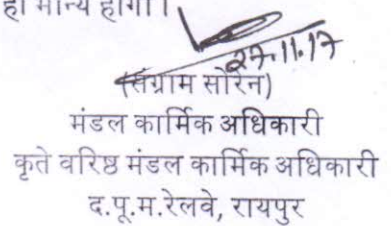 ही मान्य होगा।
27.11.17
(संग्राम सोरेन)
मंडल कार्मिक अधिकारी
कृते वरिष्ठ मंडल कार्मिक अधिकारी
द.पू.म.रेलवे, रायपुर